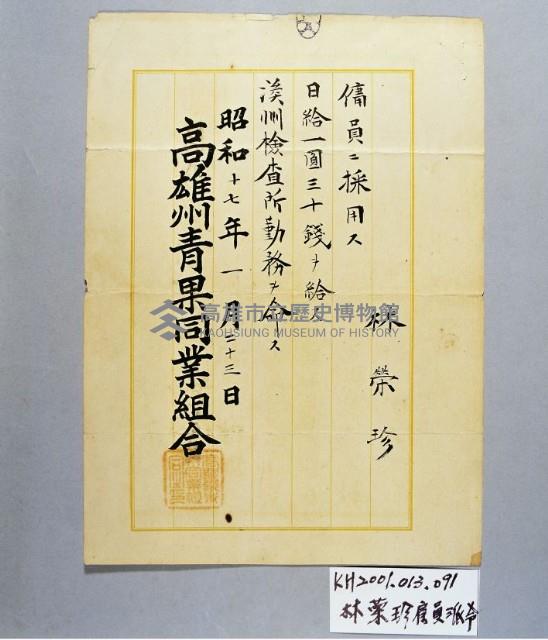 林榮珍
傭員ニ採用ス
日給一圓三十錢ヲ給ス
溪州檢查所勤務ヲ命ス
昭和十七年一月二十三日
高雄州青果同業組合
高雄市立歷史博物館
KAOHSIUNG MUSEUM OF HISTORY
KH2001.013.091
林榮珍雇員